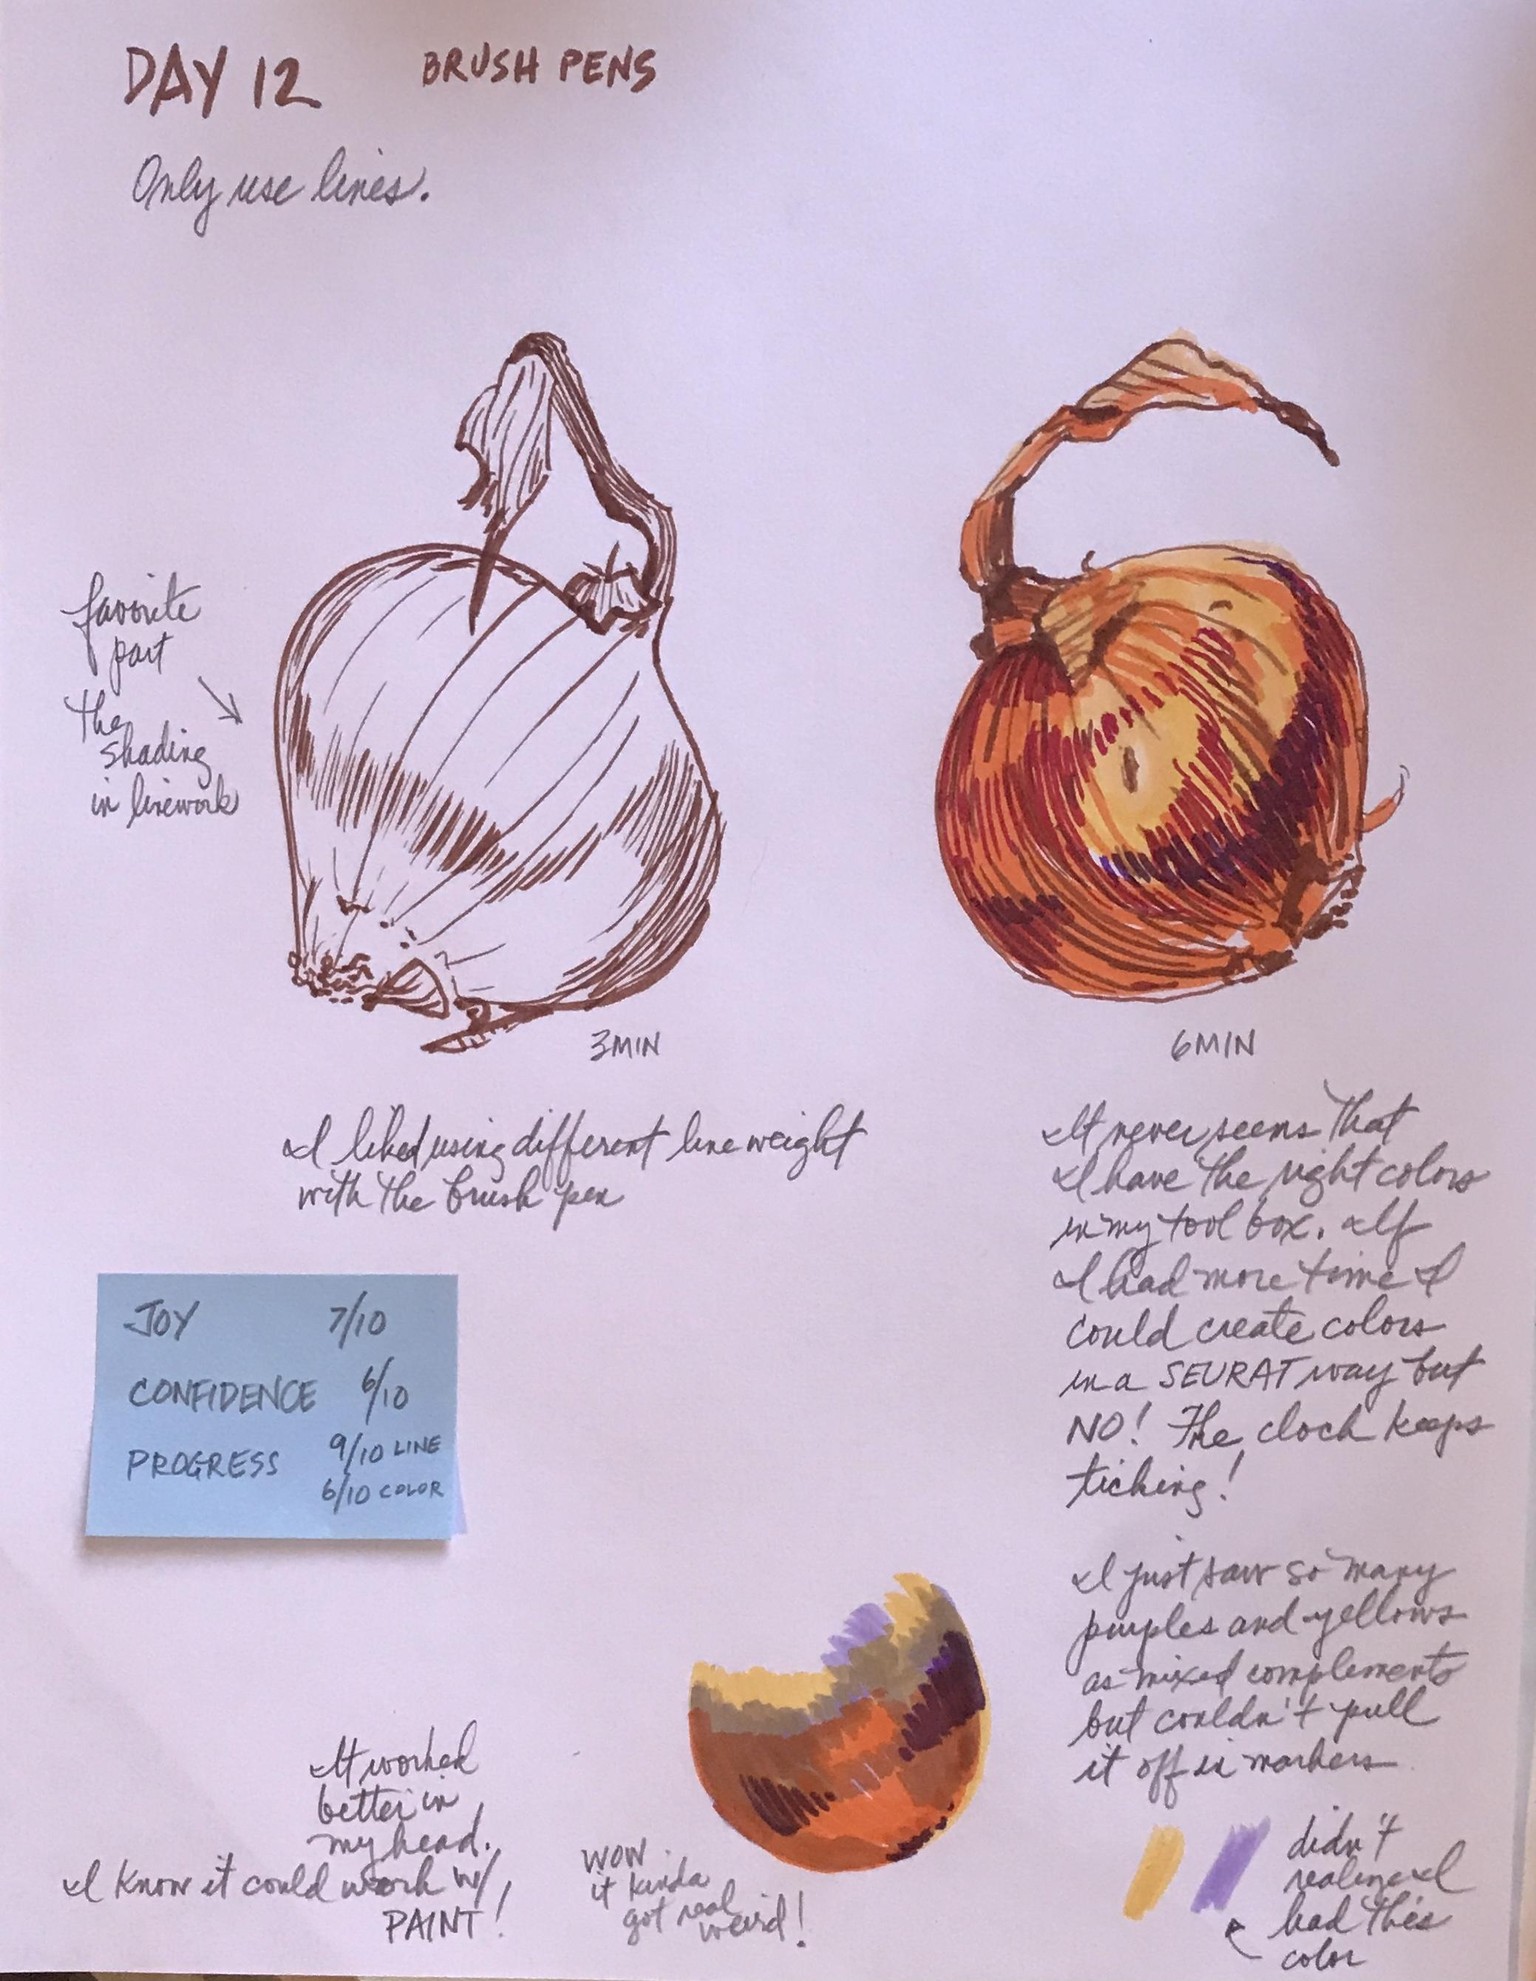 DAY 12 BRUSH PENS
Only use lines.
favorite
part
the
shading
in linework
3MIN
6MIN
I liked using different line weight
with the brush pen
It never seems that
I have the right colors
in my tool box. If
I had more time I
could create colors
in a SEURAT way but
NO! The clock keeps
ticking!
JOY 7/10
CONFIDENCE 6/10
PROGRESS 9/10 LINE
6/10 COLOR
I just saw so many
purples and yellows
as mixed complements
but couldn't pull
it off in markers
It worked
better in
my head.
I know it could work w/
PAINT!
WOW
it kinda
got real
weird!
didn't
realize I
had this
color